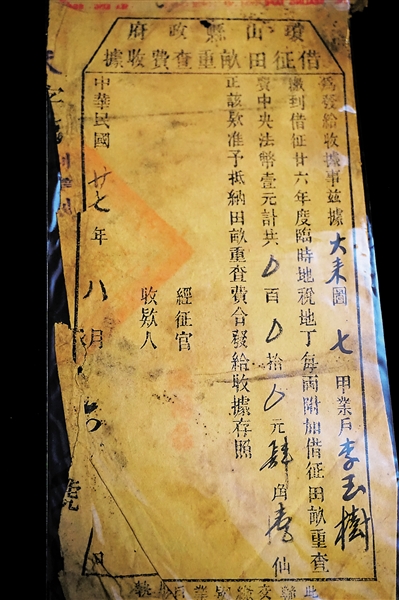 瓊山縣政府
借征田畝重查費收據
為發給收據事茲據大來圖七甲業戶李玉樹
繳到借征廿六年度臨時地稅地丁每兩附加借征田畝重查
費中央法幣壹元計共0百0拾0元肆角壹仙
正該欵准予抵納田畝重查費合發給收據存照
經征官
收欵人
中華民國廿七年八月 日
字 號